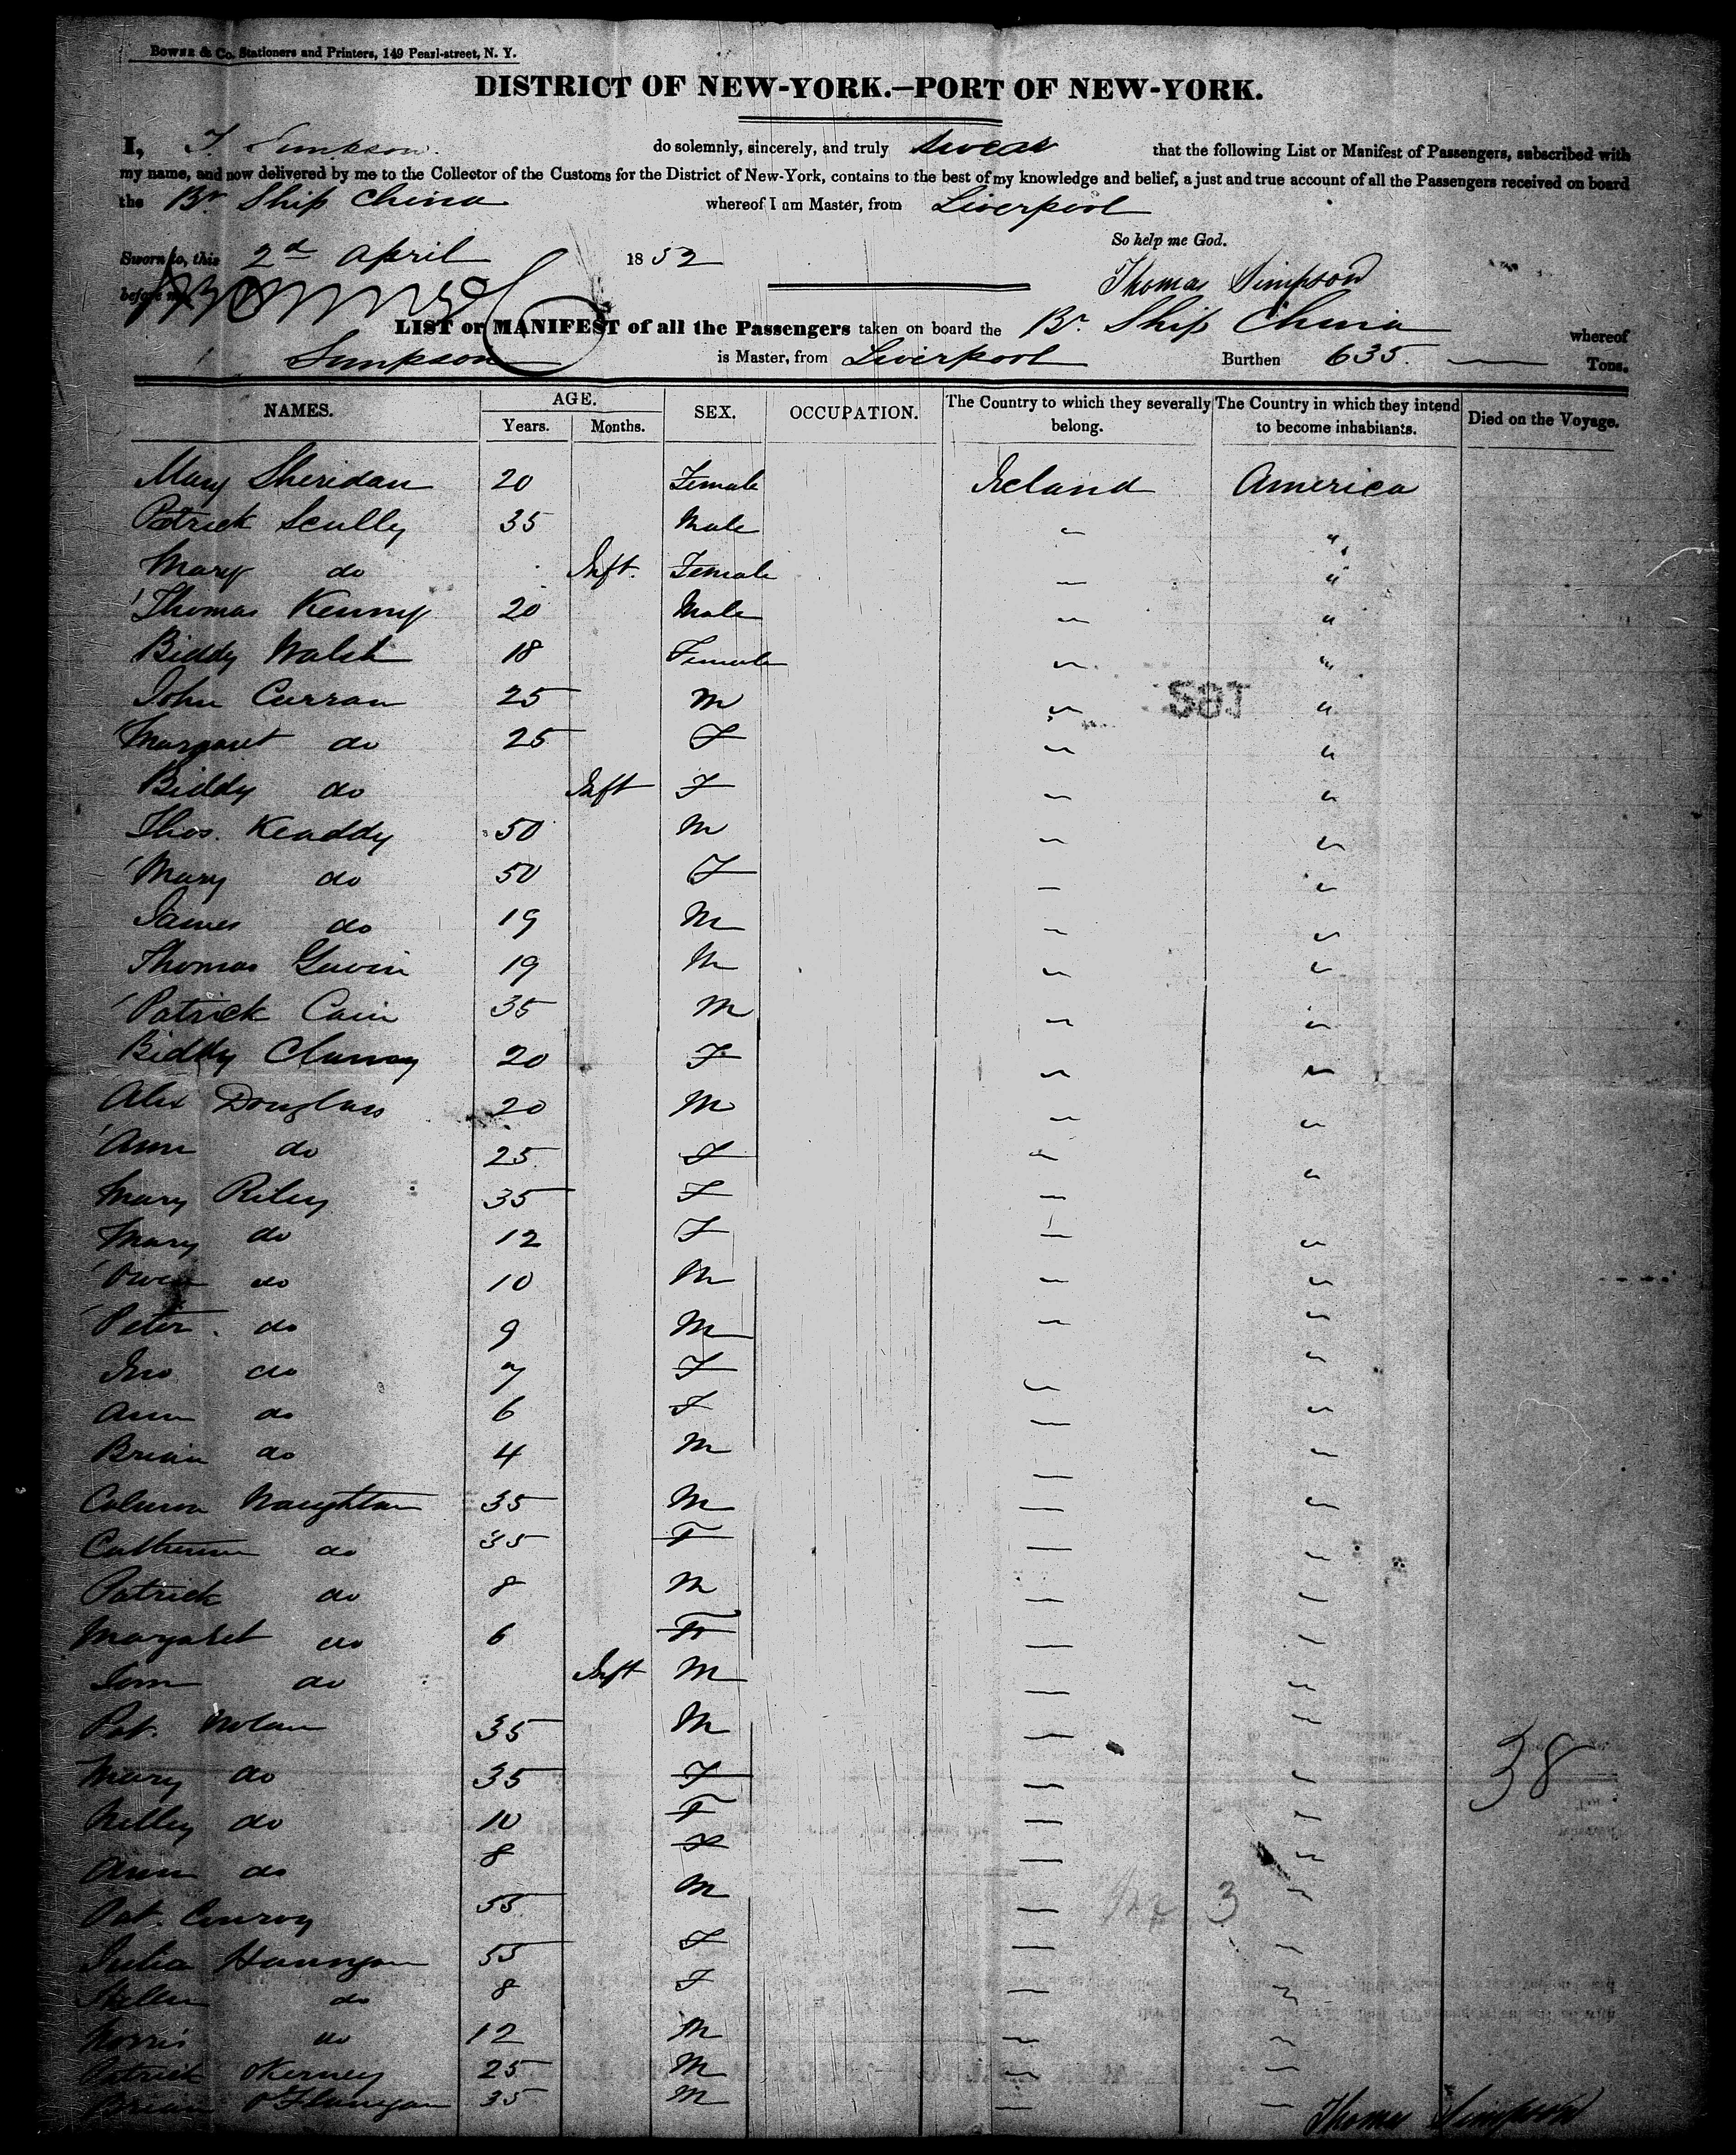 Bowne & Co. Stationers and Printers, 149 Pearl-street, N. Y.
DISTRICT OF NEW-YORK.—PORT OF NEW-YORK.
I, T. Simpson do solemnly, sincerely, and truly swear that the following List or Manifest of Passengers, subscribed with
my name, and now delivered by me to the Collector of the Customs for the District of New-York, contains to the best of my knowledge and belief, a just and true account of all the Passengers received on board
the Br Ship China whereof I am Master, from Liverpool
So help me God.
Sworn to, this 2d April 1852
Thomas Simpson
before me
LIST or MANIFEST of all the Passengers taken on board the Br. Ship China whereof
Simpson is Master, from Liverpool Burthen 635. Tons.
NAMES. AGE. Years. Months. SEX. OCCUPATION. The Country to which they severally belong. The Country in which they intend to become inhabitants. Died on the Voyage.
Mary Sheridan 20 Female Ireland America
Patrick Scully 35 Male " "
Mary do Inft. Female " "
Thomas Kenny 20 Male " "
Biddy Walsh 18 Female " "
John Curran 25 M " "
Margaret do 25 F " "
Biddy do Inft F " "
Thos. Keaddy 50 M " "
Mary do 50 F " "
James do 19 M " "
Thomas Gavin 19 M " "
Patrick Cain 35 M " "
Biddy 20 F " "
Alex Douglass 20 M " "
Ann do 25 F " "
Mary Riley 35 F "
Mary do 12 F " "
Owen do 10 M " "
Peter. do 9 M " "
Jno do 7 F " "
Ann do 6 F " "
Brian do 4 M " "
Colman Naughton 35 M " "
Catherine do 35 F " "
Patrick do 8 M " "
Margaret do 6 F " "
Tom do Inft M " "
Pat. Nolan 35 M " "
Mary do 35 F " "
38
Nelley do 10 F " "
Ann do 8 F " "
Pat. Conroy 55 M " "
3
Julia 55 F " "
do 8 F " "
Norris do 12 M " "
Patrick 25 M " "
Brian O'Flanigan 35 M " "
Thomas Simpson